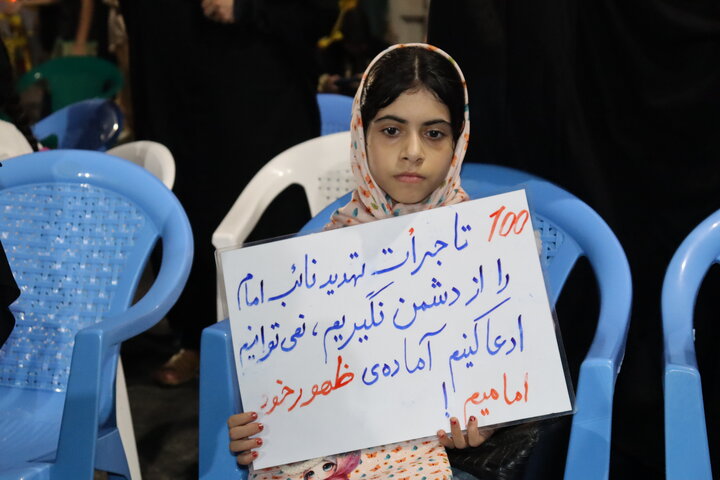 100
تا جرأت تهدید نائب امام
را از دشمن نگیریم، نمی‌توانیم
ادعا کنیم آماده‌ی ظهور خود
امامیم!